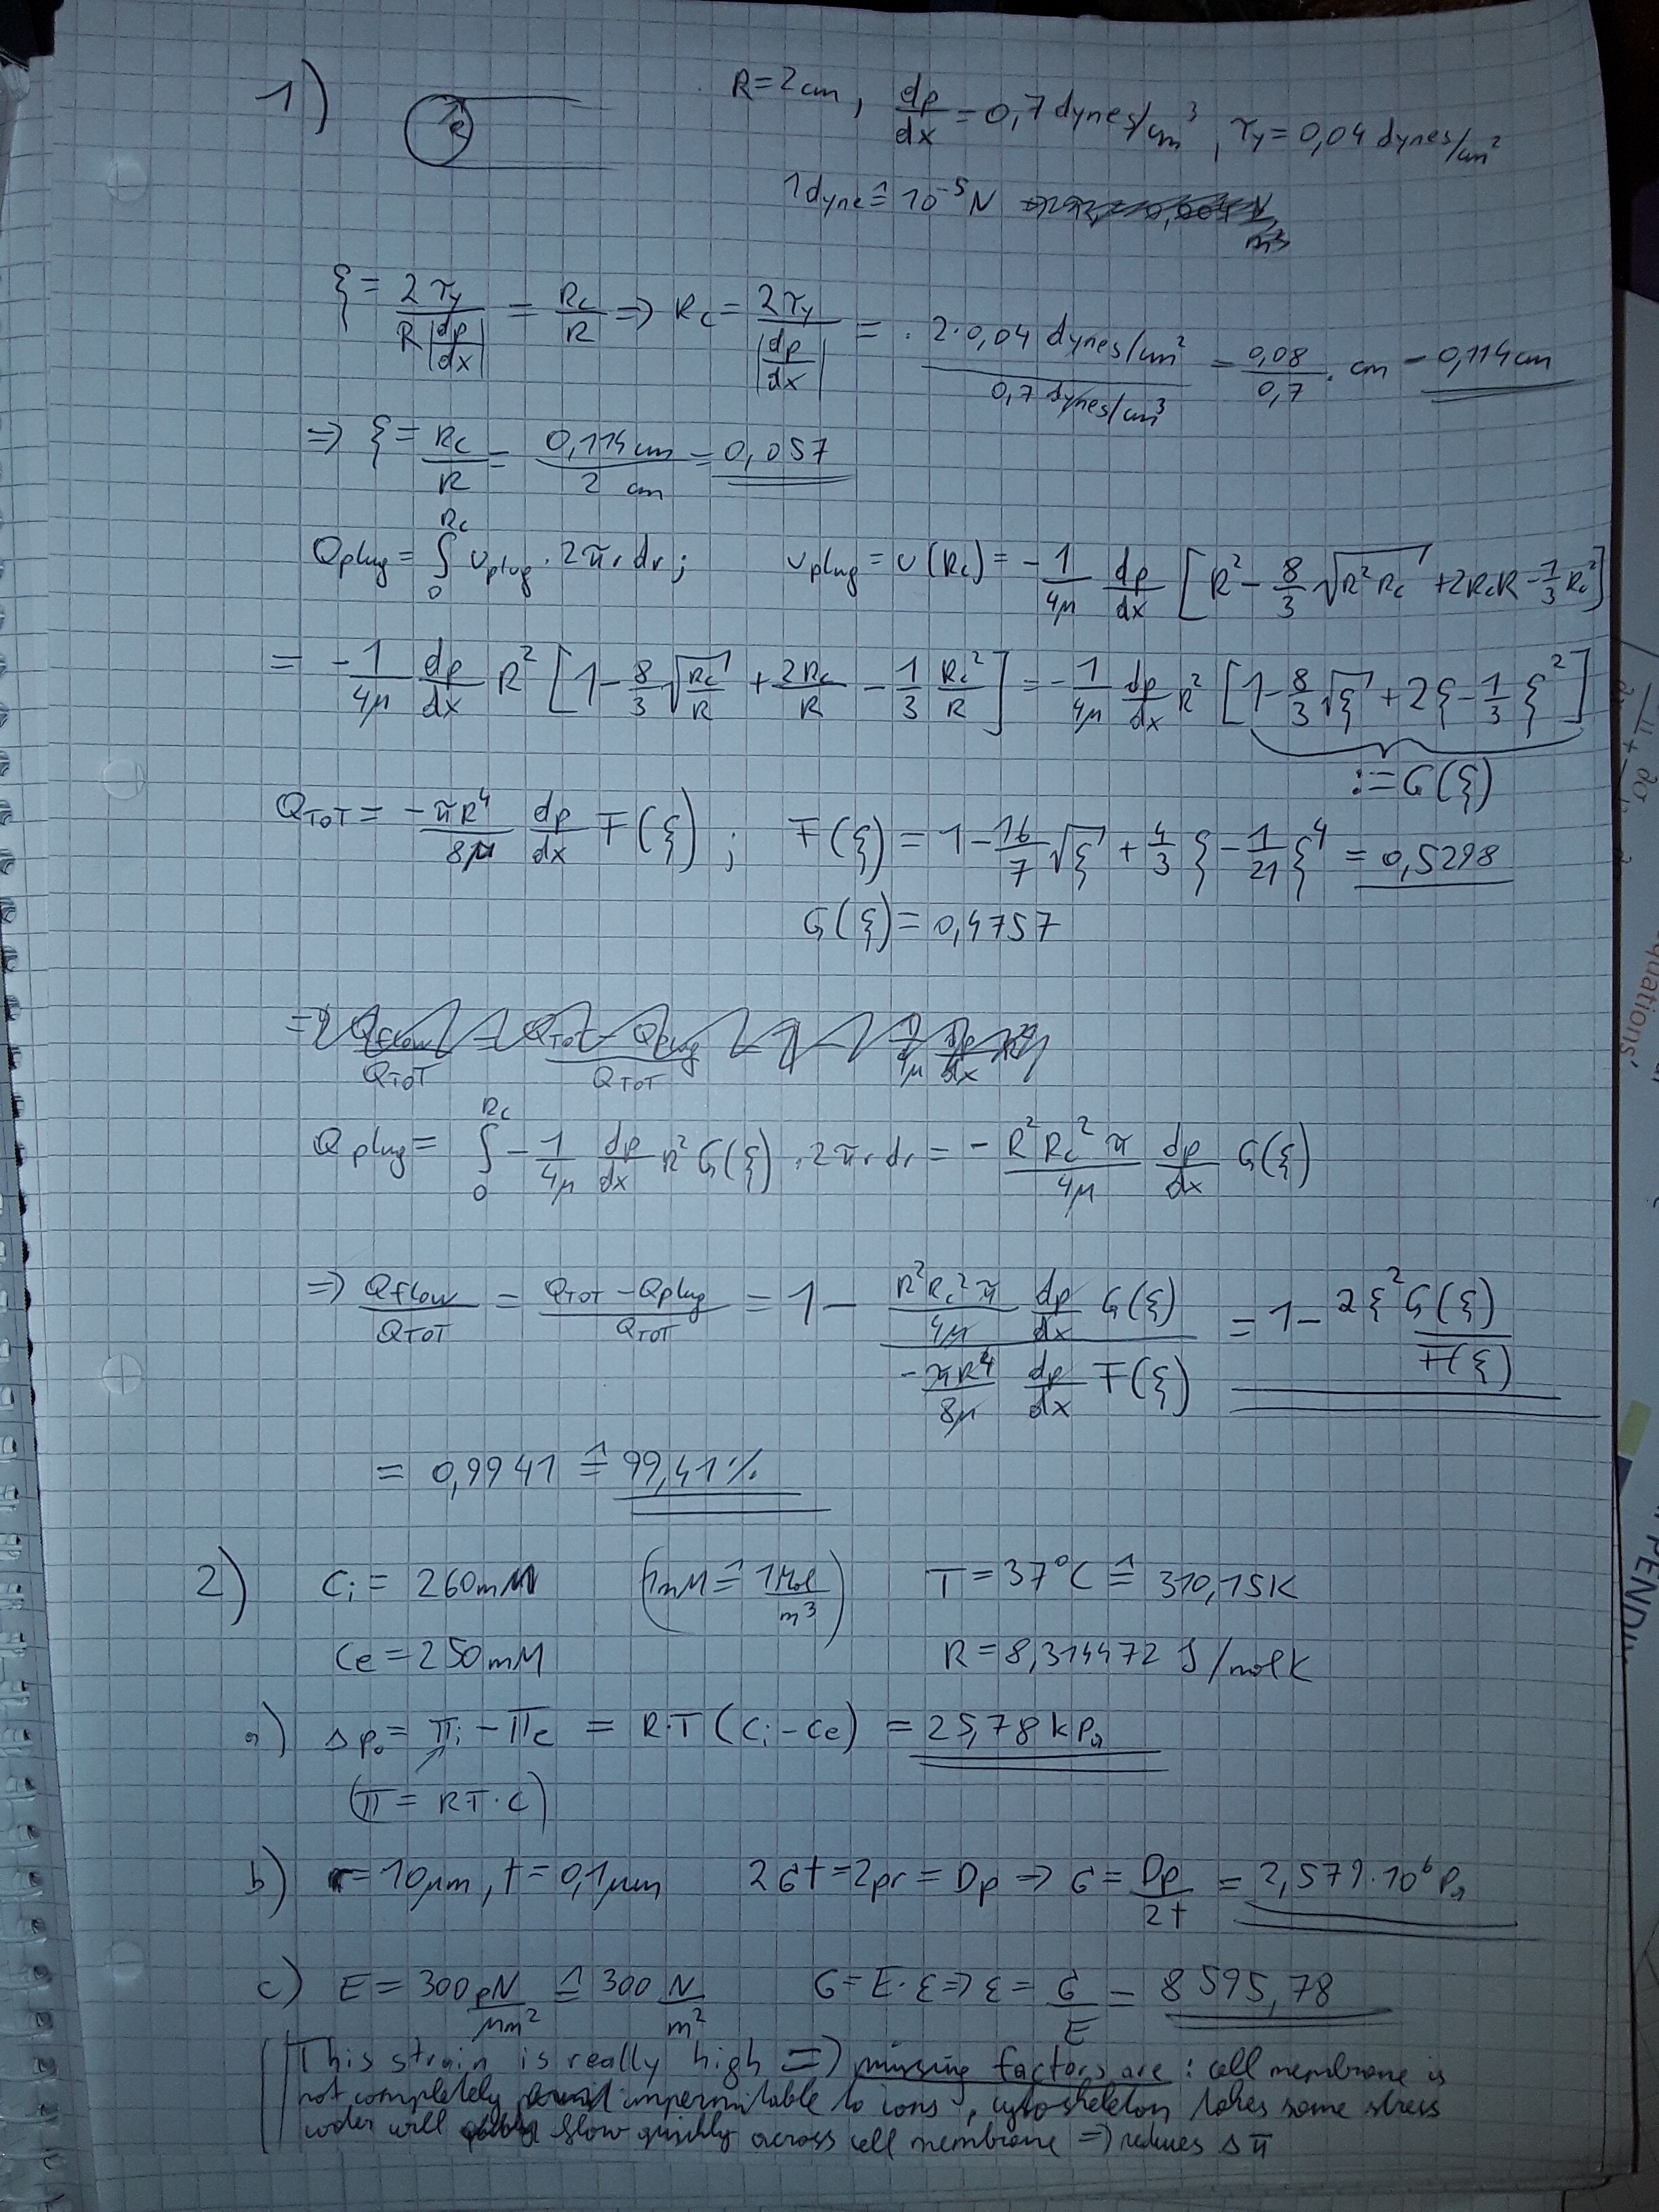 1) R R=2cm, dp/dx = 0,7 dynes/cm³, τy = 0,04 dynes/cm²
1dyne ≙ 10⁻⁵N
ξ = 2τy / (R|dp/dx|) = Rc/R => Rc = 2τy / |dp/dx| = 2·0,04 dynes/cm² / 0,7 dynes/cm³ = 0,08/0,7 · cm = 0,114cm
=> ξ = Rc/R = 0,114cm / 2 cm = 0,057
Qplug = ∫₀^Rc vplug · 2πr dr; vplug = v(Rc) = -1/4μ dp/dx [R² - 8/3 √(R²Rc) + 2RcR - 1/3 Rc²]
= -1/4μ dp/dx R² [1 - 8/3 √(Rc/R) + 2Rc/R - 1/3 Rc²/R] = -1/4μ dp/dx R² [1 - 8/3 √ξ + 2ξ - 1/3 ξ²]
:= G(ξ)
QTOT = -πR⁴/8μ dp/dx F(ξ); F(ξ) = 1 - 16/7 √ξ + 4/3 ξ - 1/21 ξ⁴ = 0,5298
G(ξ) = 0,4757
Qplug = ∫₀^Rc -1/4μ dp/dx R² G(ξ) · 2πr dr = - R²Rc²π/4μ dp/dx G(ξ)
=> Qflow/QTOT = (QTOT - Qplug)/QTOT = 1 - (R²Rc²π/4μ dp/dx G(ξ)) / (-πR⁴/8μ dp/dx F(ξ)) = 1 - 2ξ² G(ξ)/F(ξ)
= 0,9941 ≙ 99,41%
2) Ci = 260mM (1mM ≙ 1 Mol/m³) T = 37°C ≙ 310,15K
Ce = 250mM R = 8,314472 J/molK
a) Δp₀ = πi - πe = R·T (Ci - Ce) = 25,78 kPa
(π = RT·C)
b) r = 10μm, t = 0,1μm 2σt = 2pr = Dp => σ = Dp/2t = 2,579·10⁶ Pa
c) E = 300 pN/μm² ≙ 300 N/m² σ = E·ε => ε = σ/E = 8595,78
This strain is really high => missing factors are: cell membrane is
not completely impermitable to ions, cytoskeleton takes some stress
water will flow quickly across cell membrane => reduces Δπ